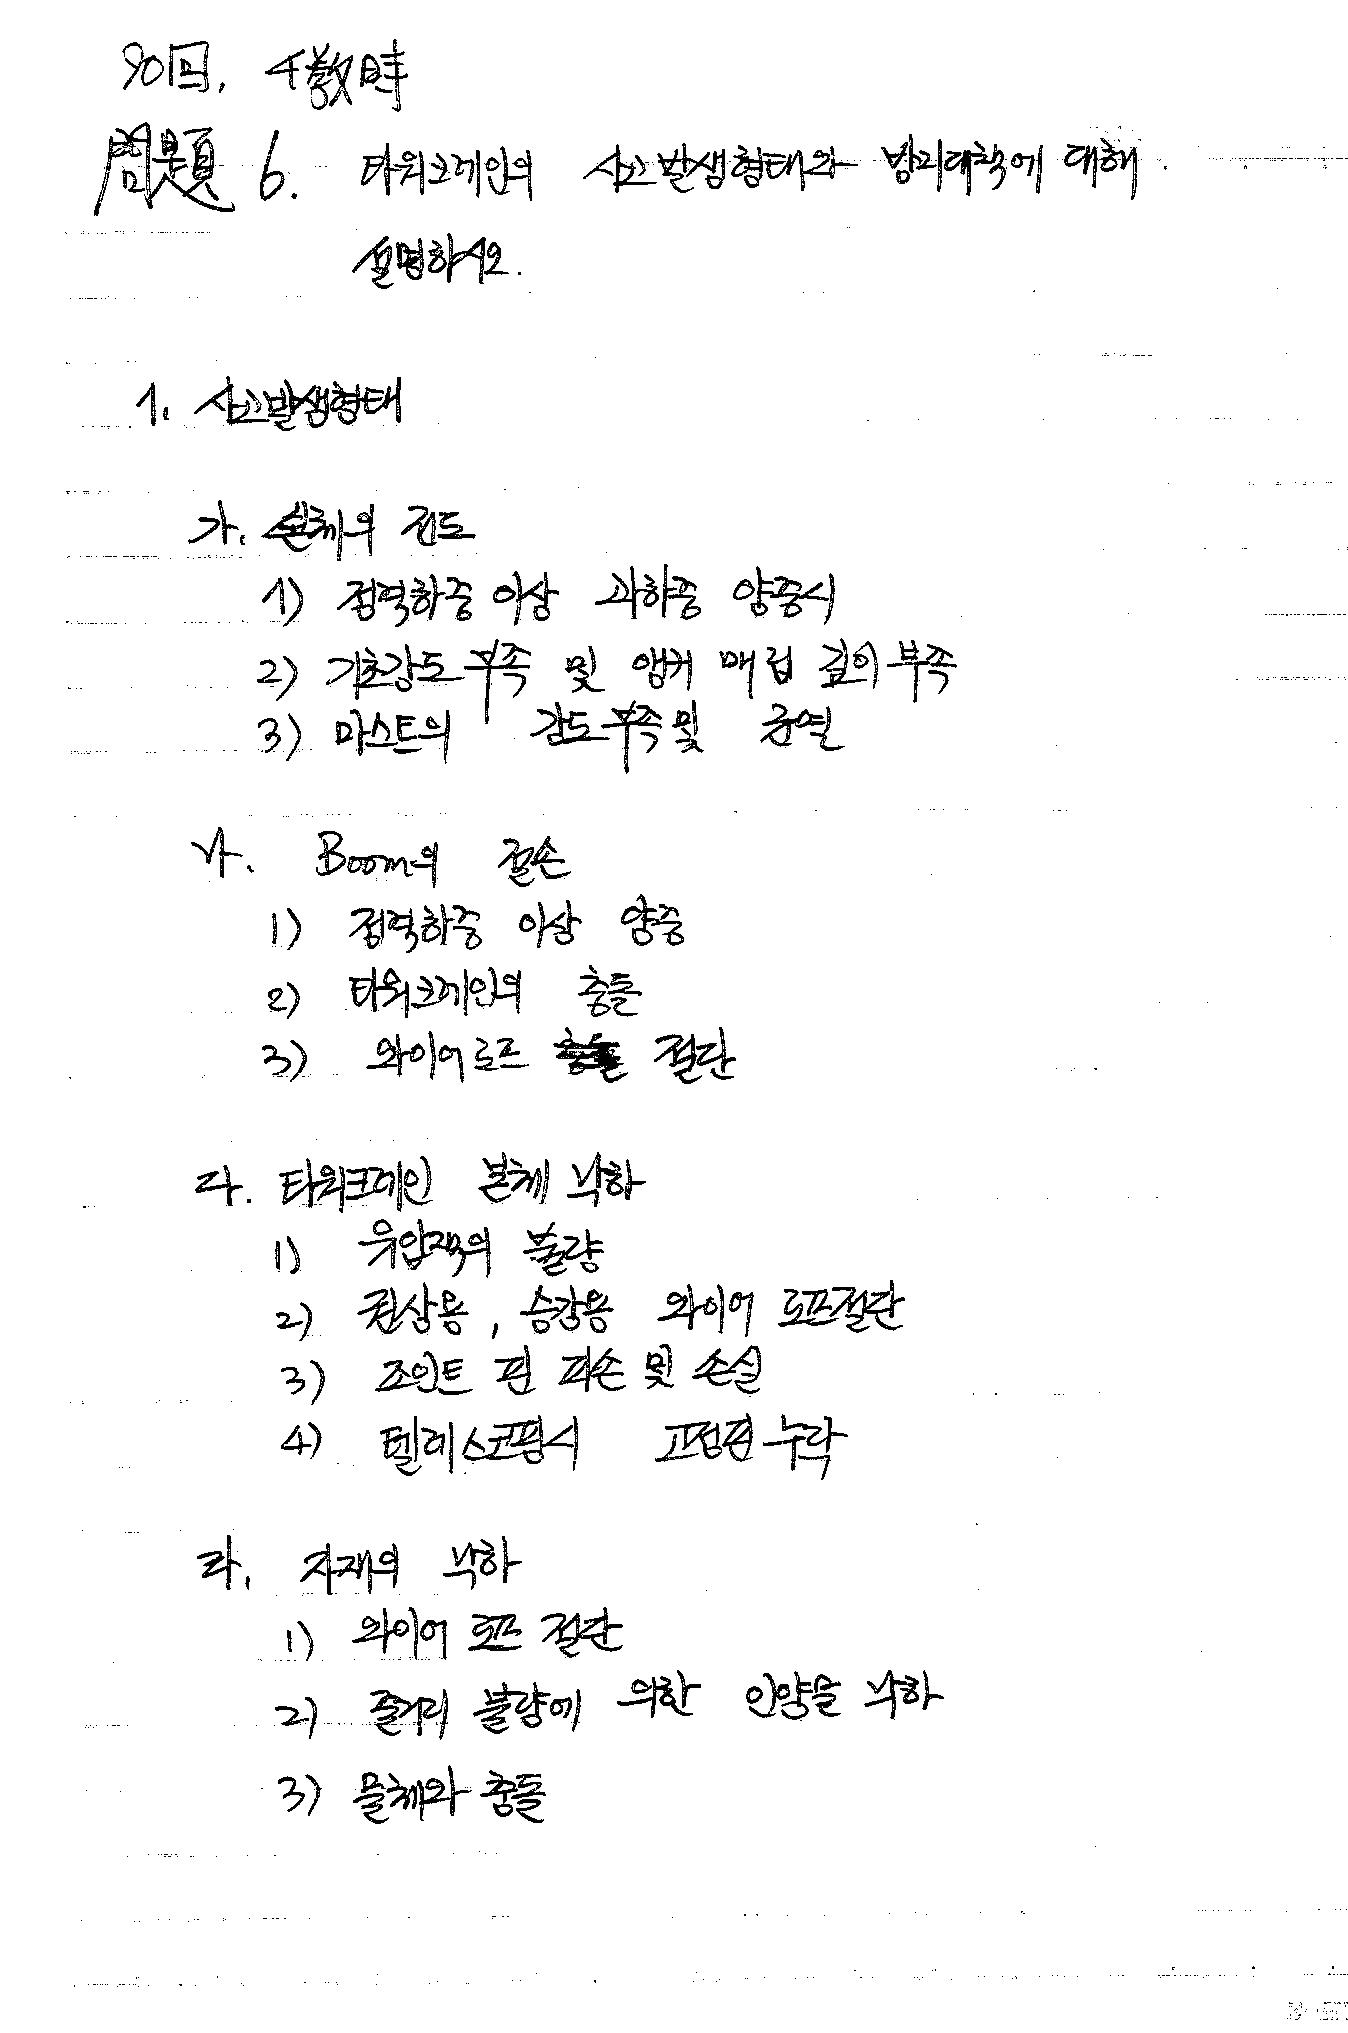 90回, 4敎時
問題 6. 타워크레인의 사고발생형태와 방지대책에 대해
설명하시오.
1. 사고발생형태
가. 본체의 전도
1) 정격하중 이상 과하중 양중시
2) 기초강도 부족 및 앵커 매립 깊이 부족
3) 마스트의 강도부족 및 균열
나. Boom의 절손
1) 정격하중 이상 양중
2) 타워크레인의 충돌
3) 와이어로프 절단
다. 타워크레인 본체 낙하
1) 유압잭의 불량
2) 권상용, 승강용 와이어 로프절단
3) 조인트 핀 파손 및 손실
4) 텔레스코핑시 고정핀 누락
라. 자재의 낙하
1) 와이어 로프 절단
2) 줄걸이 불량에 의한 인양물 낙하
3) 물체와 충돌